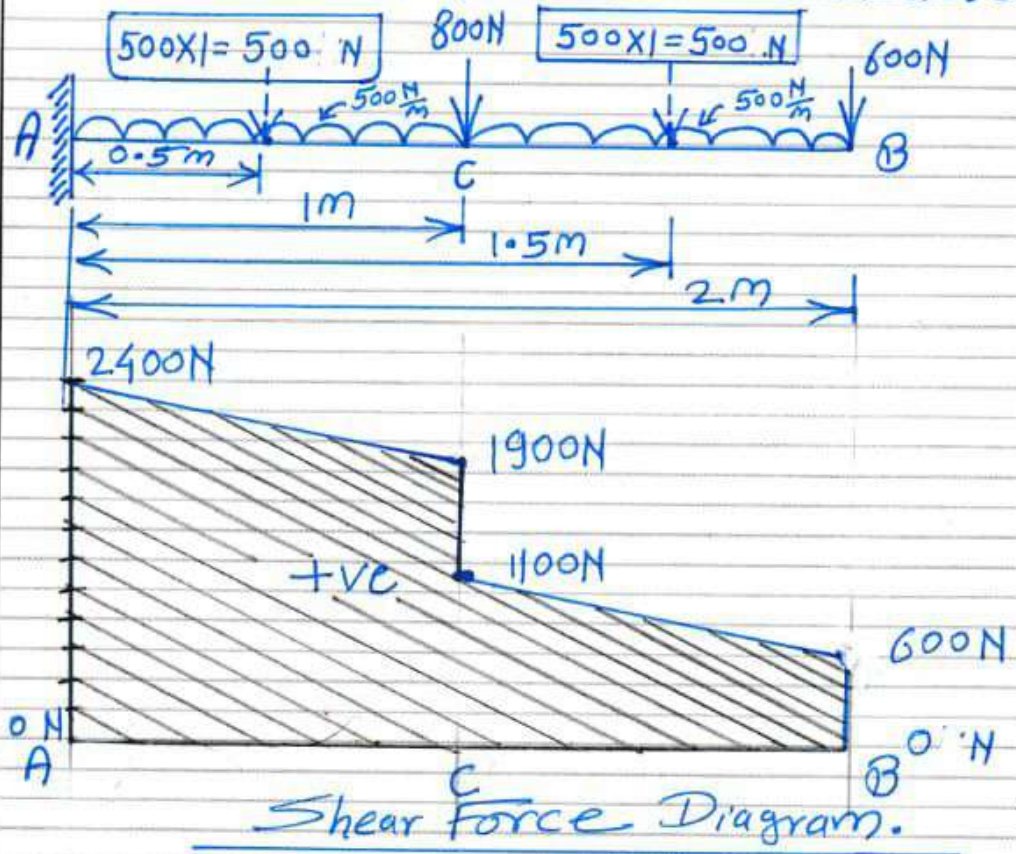 500X1=500 N 800N 500X1=500 N 600N
500 N/m 500 N/m
A 0.5m C B
1m
1.5m
2m
2400N
1900N
+ve 1100N
600N
0 N 0 N
A C B
Shear Force Diagram.